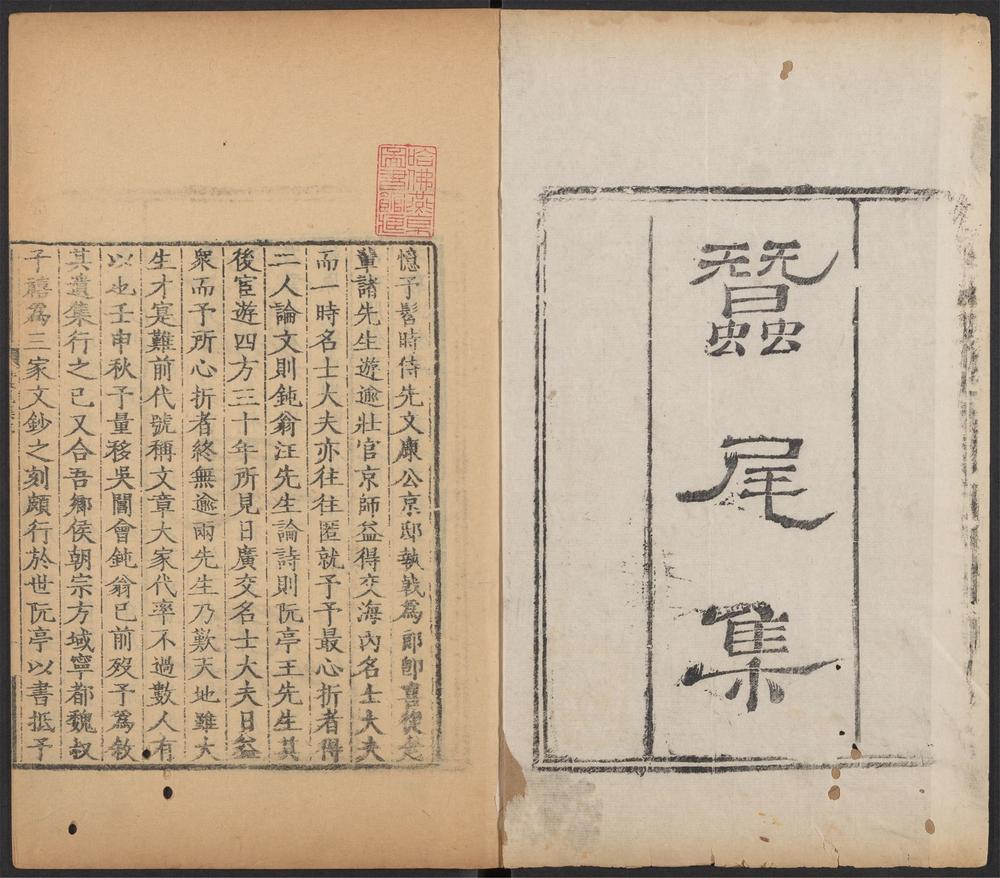 蠶尾集
哈佛燕京
圖書館藏
憶予髫時侍先文康公京邸執戟為郎即喜從
輩諸先生遊逾壯官京師益得交海內名士大夫
而一時名士大夫亦往往匿就予予最心折者得
二人論文則鈍翁汪先生論詩則阮亭王先生其
後宦遊四方三十年所見日廣交名士大夫日益
衆而予所心折者終無逾兩先生乃歎天地雖大
生才寔難前代號稱文章大家代率不過數人有
以也壬申秋予量移吳閶會鈍翁已前歿予為敘
其遺集行之已又合吾鄉侯朝宗方域寧都魏叔
子禧為三家文鈔之刻頗行於世阮亭以書抵予